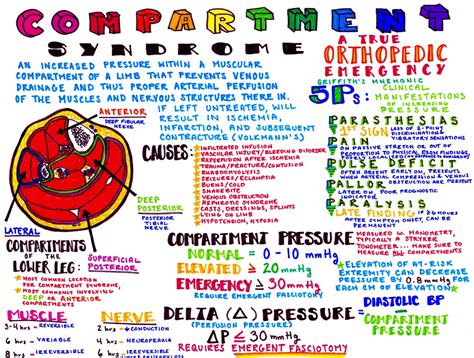 COMPARTMENT
SYNDROME
A TRUE
ORTHOPEDIC
EMERGENCY
AN INCREASED PRESSURE WITHIN A MUSCULAR
COMPARTMENT OF A LIMB THAT PREVENTS VENOUS
DRAINAGE AND THUS PROPER ARTERIAL PERFUSION
OF THE MUSCLES AND NERVOUS STRUCTURES THERE IN.
IF LEFT UNTREATED, WILL
RESULT IN ISCHEMIA,
INFARCTION, AND SUBSEQUENT
CONTRACTURE (VOLKMANN'S)
GRIFFITH'S MNEMONIC
5Ps:
CLINICAL
MANIFESTATIONS
OF INCREASING
PRESSURE
PARASTHESIAS
1ST SIGN
LOSS OF 2-POINT
DISCRIMINATION
VIBRATORY SENSATIONS
PAIN
ON PASSIVE STRETCH OR OUT OF
PROPORTION TO
PULSE DEFICIT
OFTEN ABSENT EARLY ON, PRESENTS
WHEN ARTERIAL COMPRESSION & VENOUS
OBSTRUCTION ARE PRESENT
PALLOR
LATER ON, POOR PROGNOSTIC
INDICATOR
PARALYSIS
LATE FINDING
AFTER SYMPTOM ONSET, CAN
BE PERMANENT
ANTERIOR
DEEP FIBULAR
NERVE
CAUSES:
INFILTRATED INFUSION
VASCULAR INJURY/BLEEDING DISORDER
REPERFUSION AFTER ISCHEMIA
TRAUMA/FRACTURE/CONTUSION
RHABDOMYOLYSIS
SEIZURES/ECLAMPSIA
BURNS/COLD
SNAKE BITE
VENOUS OBSTRUCTION
NEPHROTIC SYNDROME
CASTS, DRESSINGS, SPLINTS
LYING ON LIMB
HYPOTENSION, HYPOXIA
DEEP
POSTERIOR
POSTERIOR
TIBIAL
NERVE
LATERAL
SUPERFICIAL
POSTERIOR
COMPARTMENTS
OF THE
LOWER LEG:
MOST COMMON LOCATION
FOR COMPARTMENT SYNDROME,
MOST COMMONLY INVOLVING
DEEP OR ANTERIOR
COMPARTMENTS
COMPARTMENT PRESSURE
NORMAL = 0-10 mmHg
ELEVATED ≥ 20 mmHg
EMERGENCY ≥ 30 mmHg
REQUIRES EMERGENT FASCIOTOMY
MEASURED W. MANOMETRY,
TYPICALLY A STRYKER
TONOMETER... MAKE SURE TO
MEASURE ALL COMPARTMENTS
ELEVATION OF AT-RISK
EXTREMITY CAN DECREASE
PRESSURE BY 0.8 mmHg FOR
EACH CM OF ELEVATION
MUSCLE
3-4 hrs - REVERSIBLE
6 hrs - VARIABLE
8 hrs - IRREVERSIBLE
NERVE
2 hrs - ↓CONDUCTION
4 hrs - NEUROPRAXIA
8 hrs - IRREVERSIBLE
DELTA (Δ) PRESSURE =
(PERFUSION PRESSURE)
ΔP ≤ 30 mmHg
REQUIRES EMERGENT FASCIOTOMY
DIASTOLIC BP
-
COMPARTMENT
PRESSURE